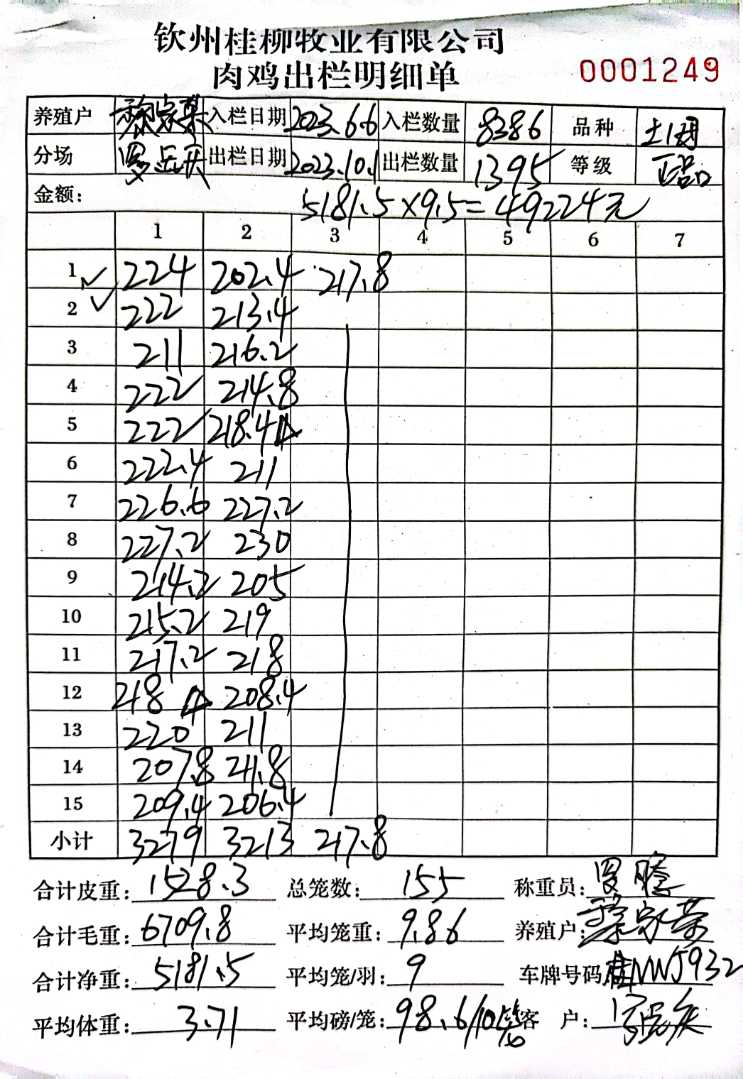 钦州桂柳牧业有限公司
肉鸡出栏明细单
0001249
养殖户 入栏日期 2023.6.6 入栏数量 8386 品种
分场 出栏日期 2023.10.1 出栏数量 1395 等级 正品
金额: 5181.5×9.5=49224元
1 2 3 4 5 6 7
1 224 202.4 217.8
2 222 213.4
3 211 216.2
4 222 214.8
5 222 218.4
6 222.4 211
7 226.6 227.2
8 227.2 230
9 214.2 205
10 215.2 219
11 217.2 218
12 218 208.4
13 220 211
14 207.8 211.8
15 209.4 206.4
小计 3279 3213 217.8
合计皮重: 1528.3 总笼数: 155 称重员:
合计毛重: 6709.8 平均笼重: 9.86 养殖户:
合计净重: 5181.5 平均笼/羽: 9 车牌号码: 桂NW5932
平均体重: 3.71 平均磅/笼: 98.6/10 客 户: